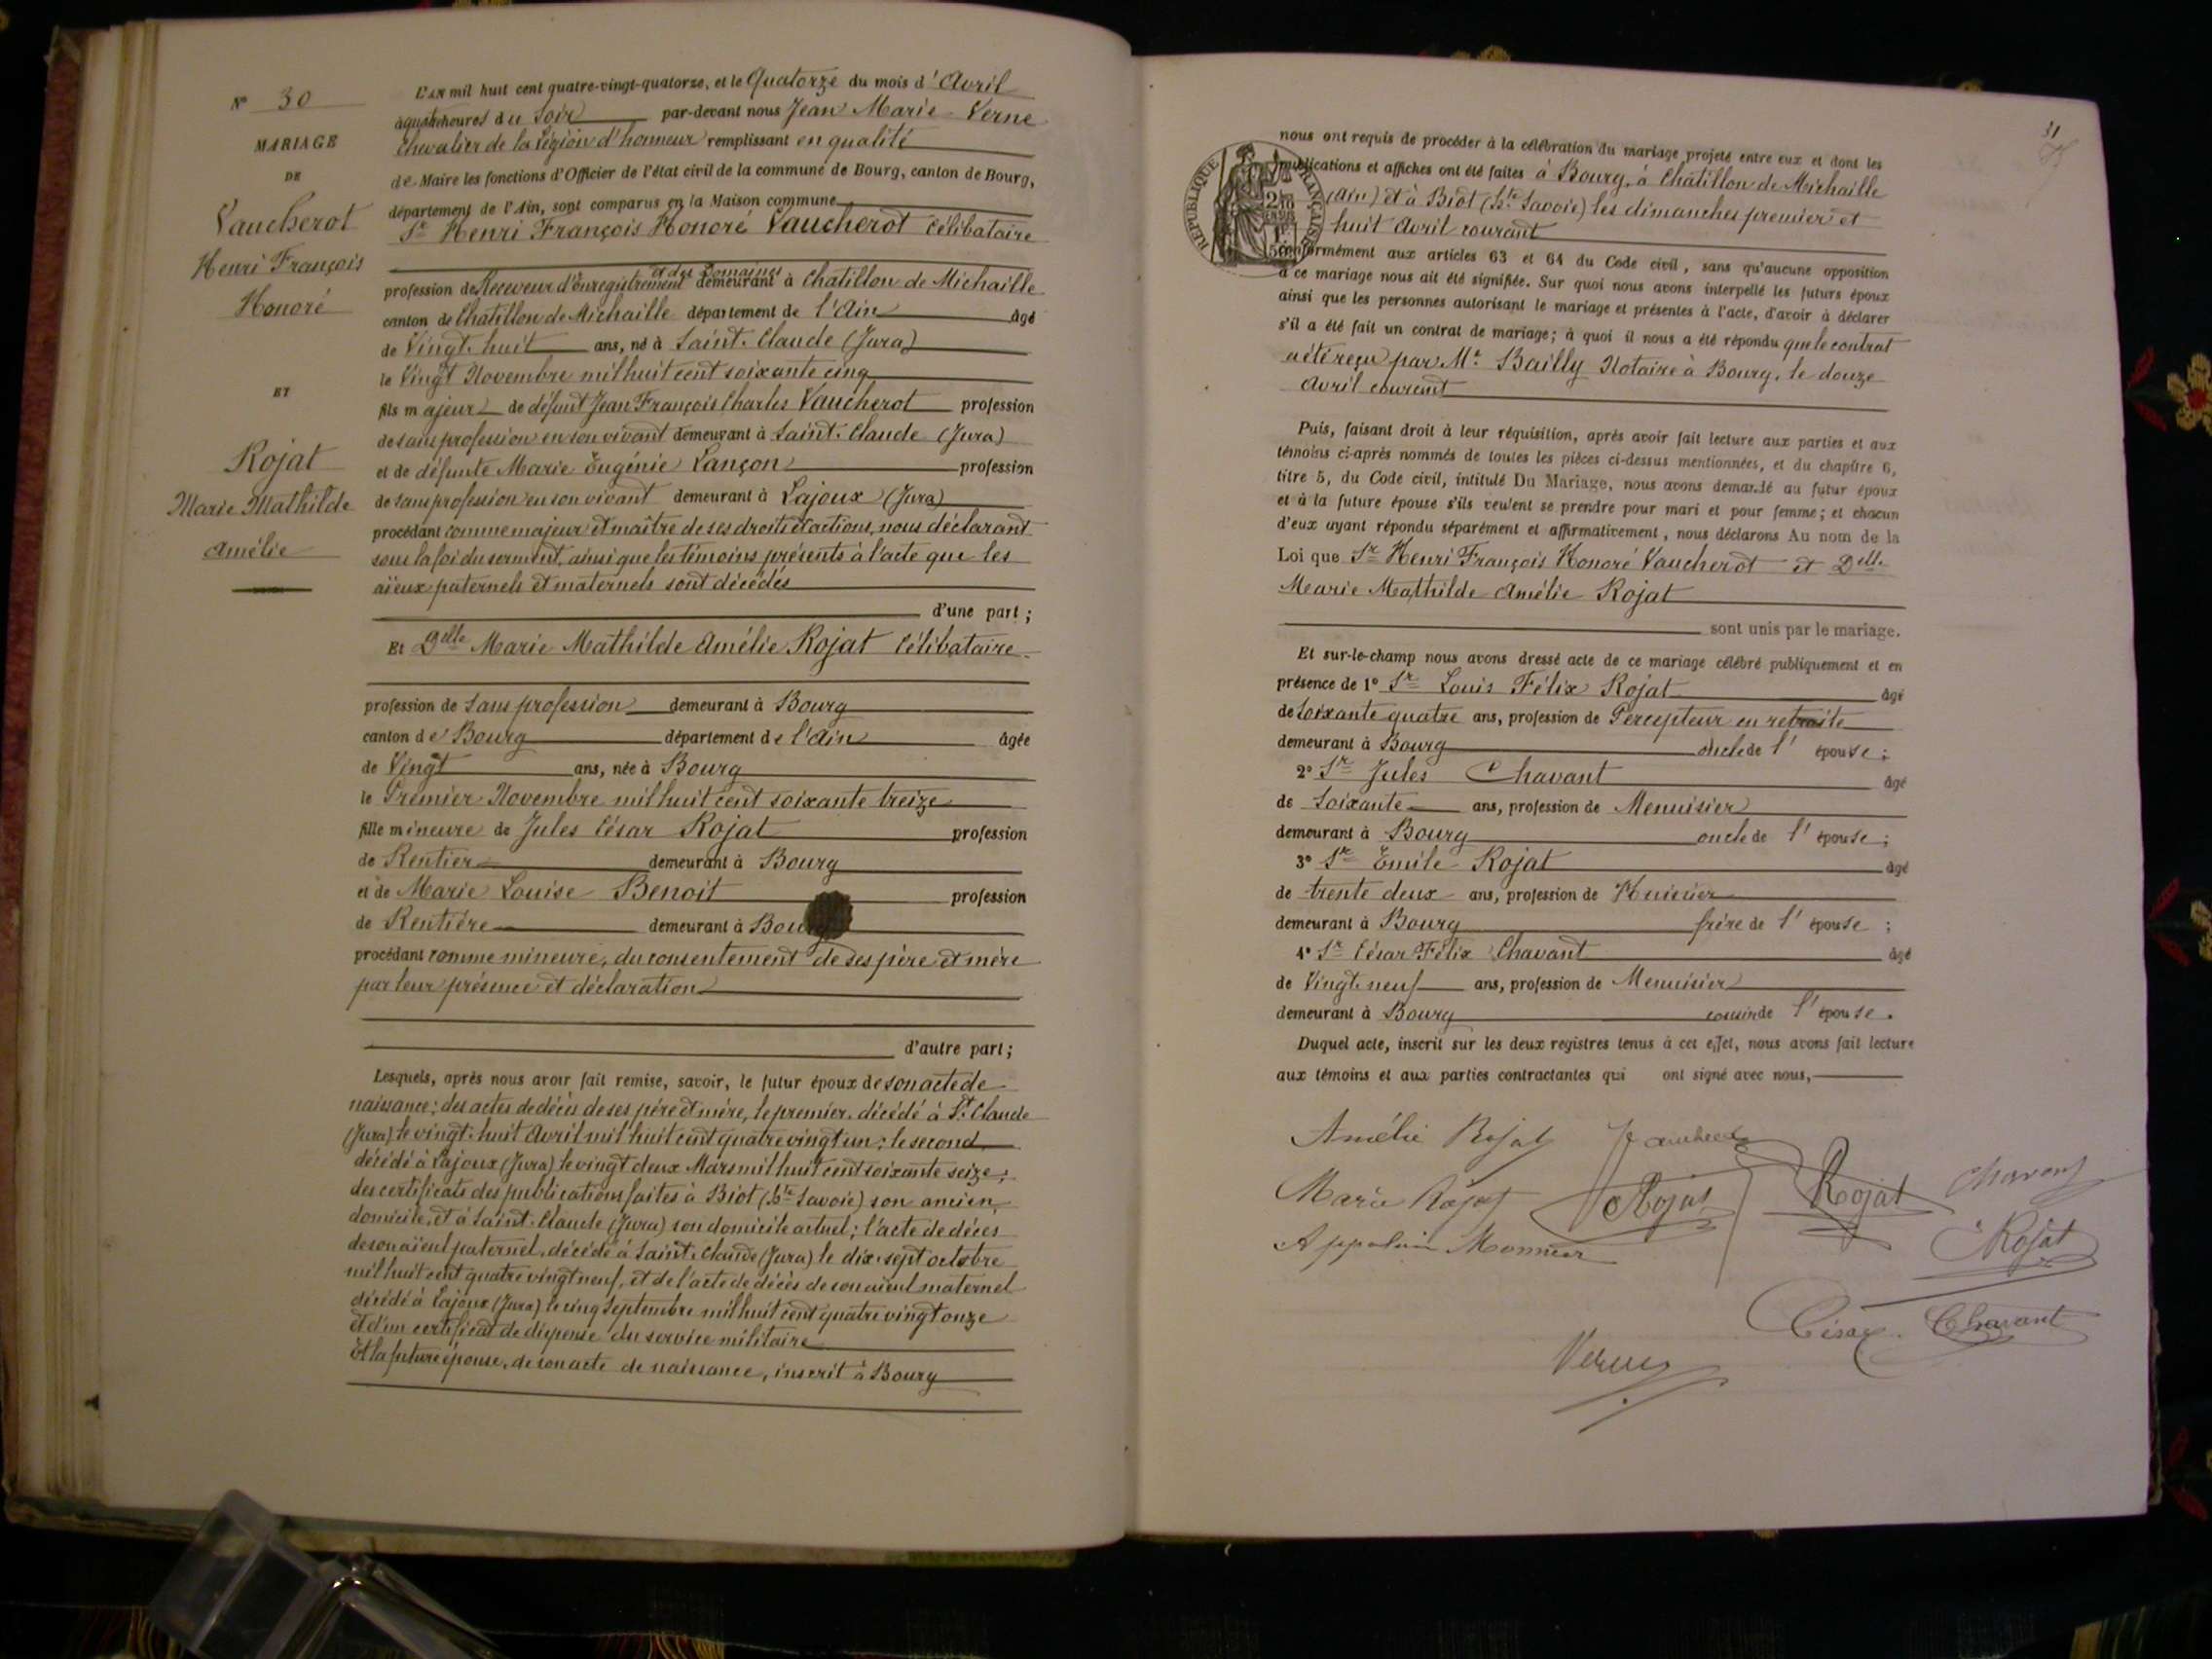 N° 30
MARIAGE
DE
Vaucherot
Henri François
Honoré
ET
Rojat
Marie Mathilde
Amélie
L'AN mil huit cent quatre-vingt-quatorze, et le Quatorze du mois d'Avril
à quatre heures du Soir par-devant nous Jean Marie Verne
Chevalier de la Légion d'honneur remplissant en qualité
de Maire les fonctions d'Officier de l'état civil de la commune de Bourg, canton de Bourg,
département de l'Ain, sont comparus en la Maison commune
Sr Henri François Honoré Vaucherot Célibataire
et des Domaines
profession de Receveur d'Enregistrement demeurant à Chatillon de Michaille
canton de Chatillon de Michaille département de l'Ain âgé
de Vingt huit ans, né à Saint-Claude (Jura)
le Vingt Novembre mil huit cent soixante cinq
fils majeur de défunt Jean François Charles Vaucherot profession
de sans profession en son vivant demeurant à Saint-Claude (Jura)
et de défunte Marie Eugénie Lançon profession
de sans profession en son vivant demeurant à Lajoux (Jura)
procédant comme majeur et maître de ses droits et actions, nous déclarant
sous la foi du serment, ainsi que les témoins présents à l'acte que les
aïeux paternels et maternels sont décédés
d'une part;
Et Delle Marie Mathilde Amélie Rojat Célibataire
profession de Sans profession demeurant à Bourg
canton de Bourg département de l'Ain âgée
de Vingt ans, née à Bourg
le Premier Novembre mil huit cent soixante treize
fille mineure de Jules César Rojat profession
de Rentier demeurant à Bourg
et de Marie Louise Benoit profession
de Rentière demeurant à Bourg
procédant comme mineure, du consentement de ses père et mère
par leur présence et déclaration
d'autre part;
Lesquels, après nous avoir fait remise, savoir, le futur époux de son acte de
naissance; des actes de décès de ses père et mère, le premier, décédé à St Claude
(Jura) le vingt-huit Avril mil huit cent quatre vingt un; le second,
décédé à Lajoux (Jura) le vingt deux Mars mil huit cent soixante seize;
des certificats des publications faites à Biot (hte Savoie) son ancien
domicile, et à Saint-Claude (Jura) son domicile actuel; l'acte de décès
de son aïeul paternel, décédé à Saint-Claude (Jura) le dix-sept octobre
mil huit cent quatre vingt neuf, et de l'acte de décès de son aïeul maternel
décédé à Lajoux (Jura) le cinq Septembre mil huit cent quatre vingt onze
et d'un certificat de dispense du service militaire
Et la future épouse, de son acte de naissance, inscrit à Bourg
31
RÉPUBLIQUE FRANÇAISE
nous ont requis de procéder à la célébration du mariage projeté entre eux et dont les
publications et affiches ont été faites à Bourg, à Chatillon de Michaille
(Ain) et à Biot (hte Savoie) les dimanches premier et
huit Avril courant
conformément aux articles 63 et 64 du Code civil, sans qu'aucune opposition
à ce mariage nous ait été signifiée. Sur quoi nous avons interpellé les futurs époux
ainsi que les personnes autorisant le mariage et présentes à l'acte, d'avoir à déclarer
s'il a été fait un contrat de mariage; à quoi il nous a été répondu que le contrat
a été reçu par Me Bailly Notaire à Bourg, le douze
Avril courant
Puis, faisant droit à leur réquisition, après avoir fait lecture aux parties et aux
témoins ci-après nommés de toutes les pièces ci-dessus mentionnées, et du chapitre 6,
titre 5, du Code civil, intitulé Du Mariage, nous avons demandé au futur époux
et à la future épouse s'ils veulent se prendre pour mari et pour femme; et chacun
d'eux ayant répondu séparément et affirmativement, nous déclarons Au nom de la
Loi que Sr Henri François Honoré Vaucherot et Delle
Marie Mathilde Amélie Rojat
sont unis par le mariage.
Et sur-le-champ nous avons dressé acte de ce mariage célébré publiquement et en
présence de 1° Sr Louis Félix Rojat âgé
de Soixante quatre ans, profession de Percepteur en retraite
demeurant à Bourg oncle de l'épouse;
2° Sr Jules Chavant âgé
de Soixante ans, profession de Menuisier
demeurant à Bourg oncle de l'épouse;
3° Sr Emile Rojat âgé
de trente deux ans, profession de Huissier
demeurant à Bourg frère de l'épouse;
4° Sr César Félix Chavant âgé
de Vingt-neuf ans, profession de Menuisier
demeurant à Bourg cousin de l'épouse.
Duquel acte, inscrit sur les deux registres tenus à cet effet, nous avons fait lecture
aux témoins et aux parties contractantes qui ont signé avec nous,
Amélie Rojat
Marie Rojat Rojat Rojat Chavant
Monnier Rojat
César Chavant
Verne